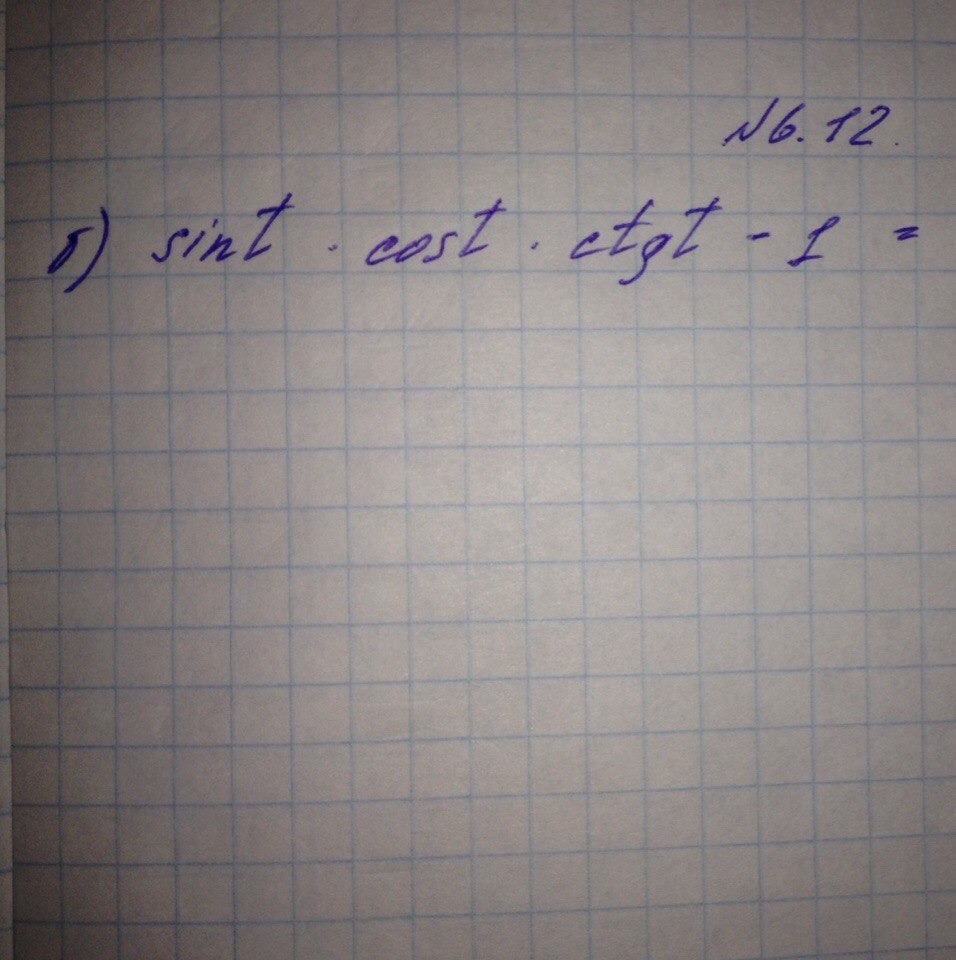 №6.12.
б) sint · cost · ctgt - 1 =